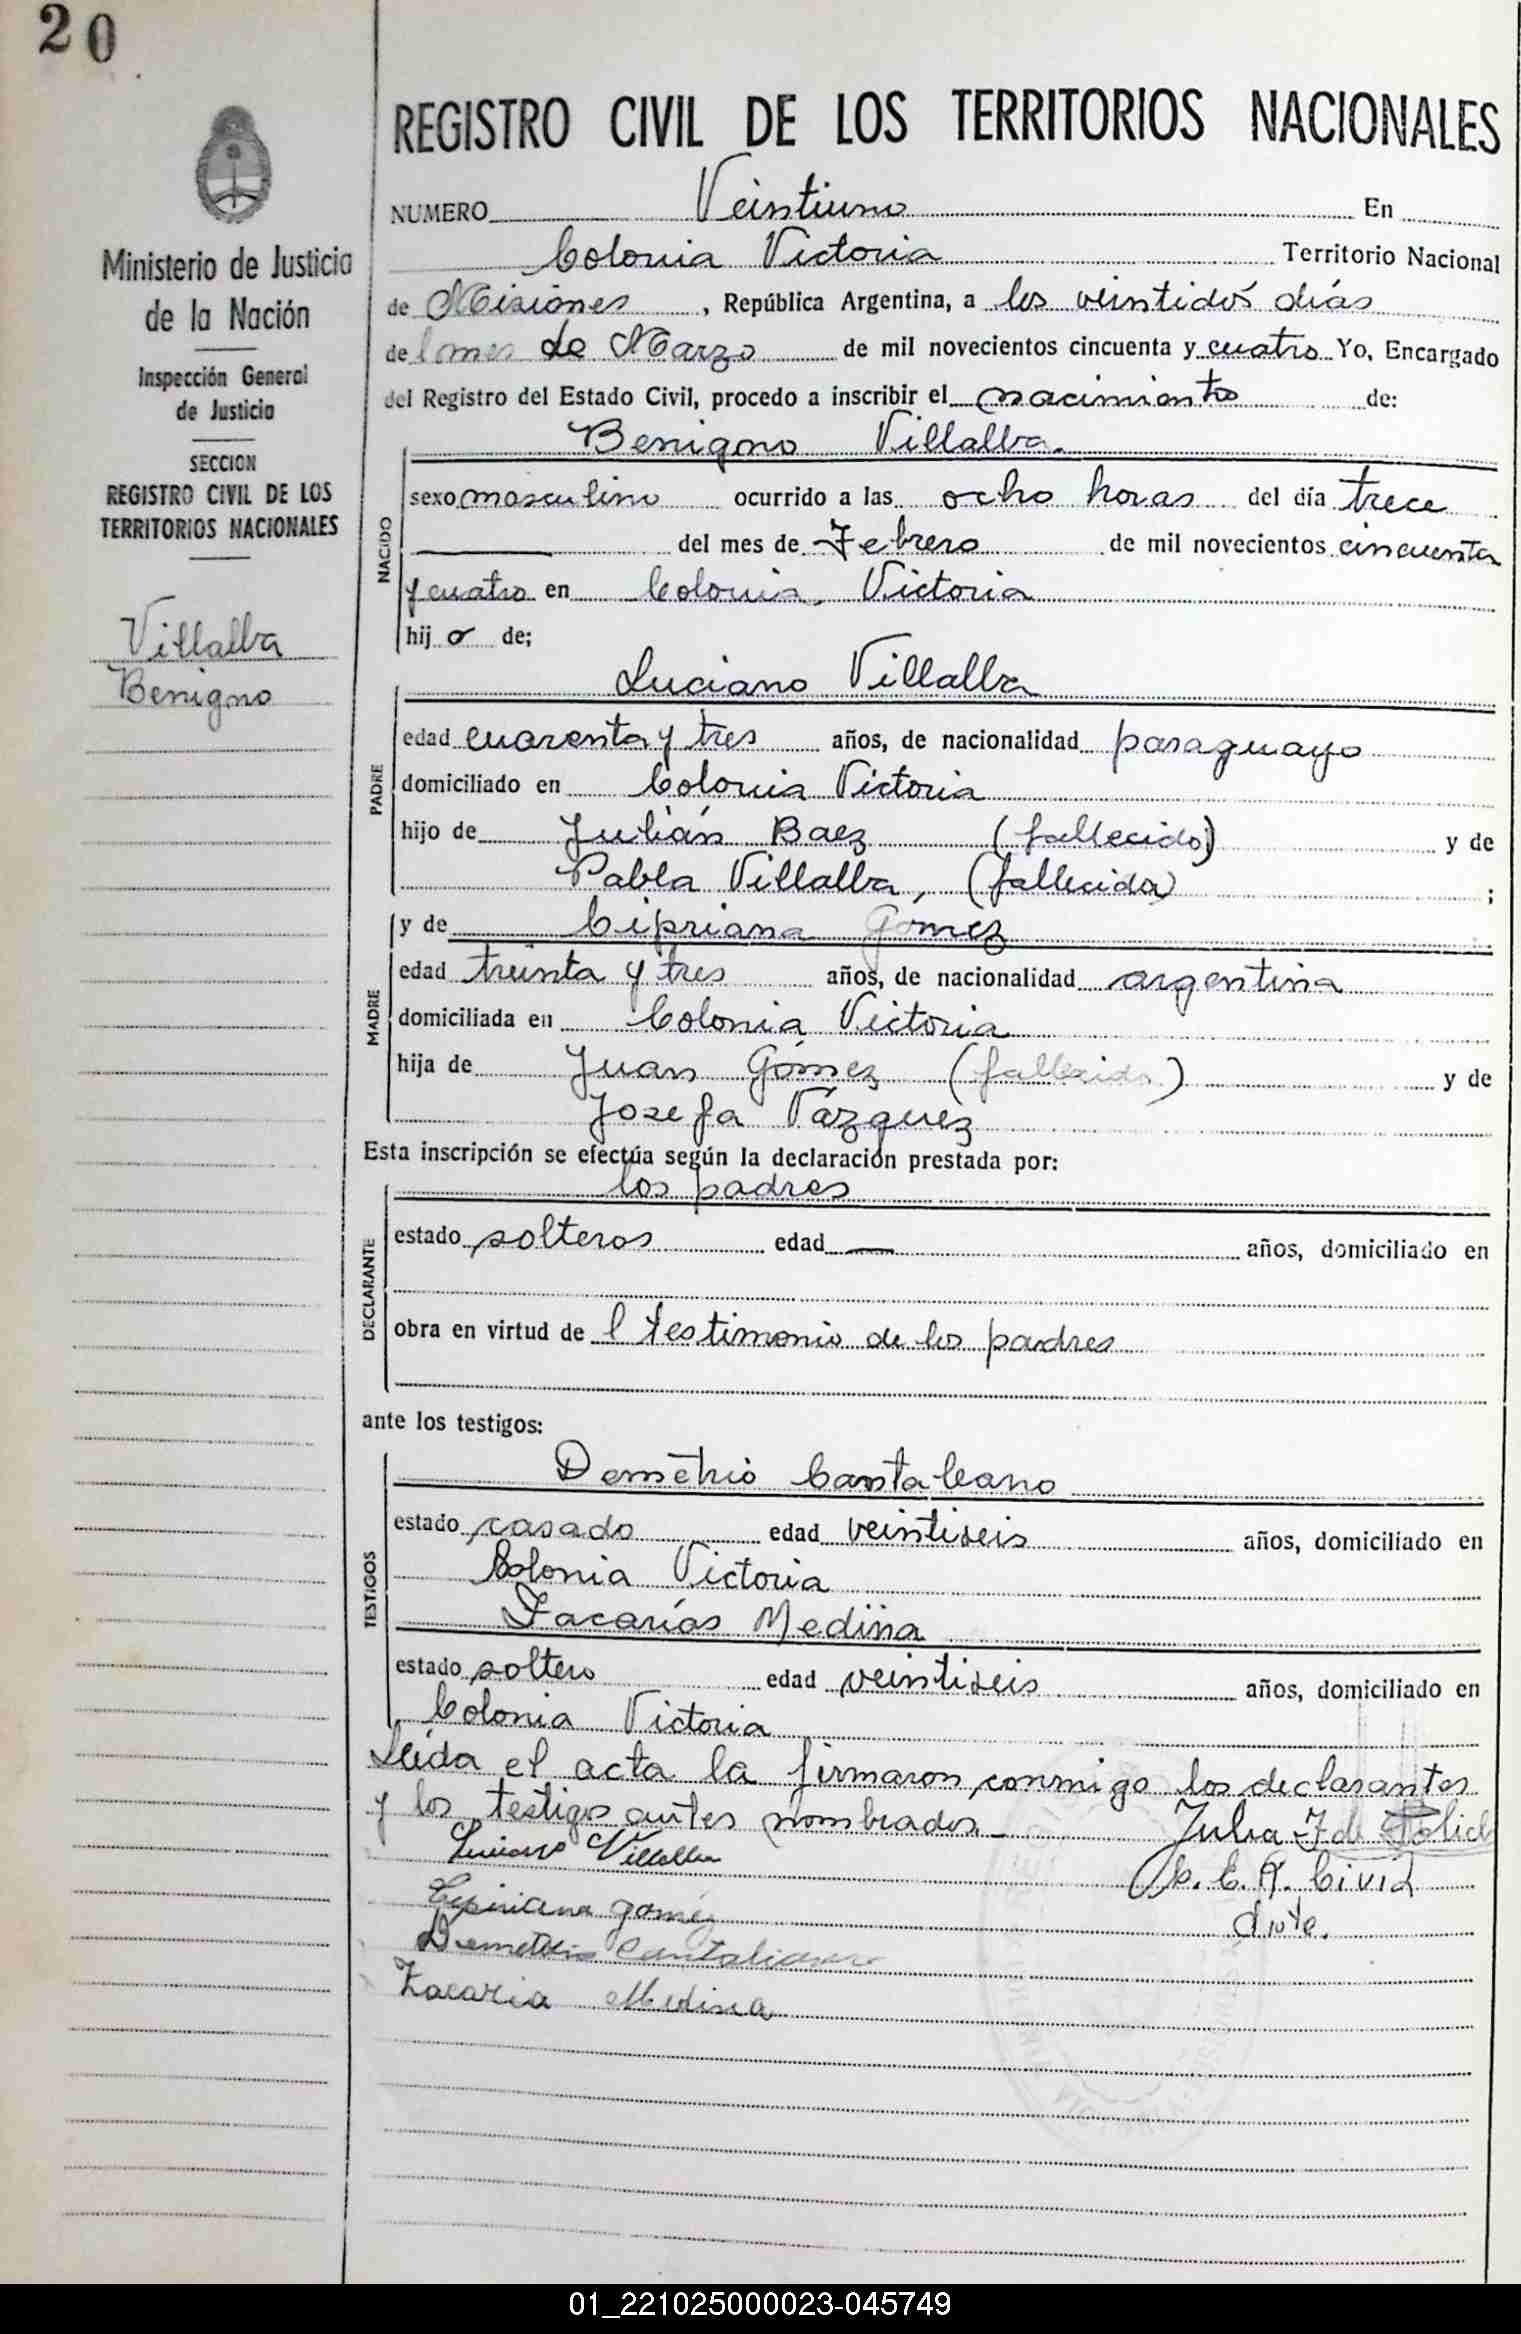 20
Ministerio de Justicia
de la Nación
Inspección General
de Justicia
SECCION
REGISTRO CIVIL DE LOS
TERRITORIOS NACIONALES
Villalba
Benigno
REGISTRO CIVIL DE LOS TERRITORIOS NACIONALES
NUMERO Veintiuno En
Colonia Victoria Territorio Nacional
de Misiones, República Argentina, a los veintidós días
del mes de Marzo de mil novecientos cincuenta y cuatro Yo, Encargado
del Registro del Estado Civil, procedo a inscribir el nacimiento de:
Benigno Villalba.
NACIDO
sexo masculino ocurrido a las ocho horas del día trece
del mes de Febrero de mil novecientos cincuenta
y cuatro en Colonia Victoria
hijo de;
PADRE
Luciano Villalba
edad cuarenta y tres años, de nacionalidad paraguayo
domiciliado en Colonia Victoria
hijo de Julián Baez (fallecido) y de
Pabla Villalba, (fallecida) ;
MADRE
y de Cipriana Gomez
edad treinta y tres años, de nacionalidad argentina
domiciliada en Colonia Victoria
hija de Juan Gómez (fallecido) y de
Josefa Vázquez
Esta inscripción se efectúa según la declaración prestada por:
DECLARANTE
los padres
estado solteros edad — años, domiciliado en
obra en virtud del testimonio de los padres
ante los testigos:
TESTIGOS
Demetrio Cantaleano
estado casado edad veintiseis años, domiciliado en
Colonia Victoria
Zacarías Medina
estado soltero edad veintiseis años, domiciliado en
Colonia Victoria
Leída el acta la firmaron conmigo los declarantes
y los testigos antes nombrados.—
Julia F de
Luciano Villalba
E. R. Civil
Cipriana gomez
Demetrio Cantaliano
Zacaria Medina
01_221025000023-045749